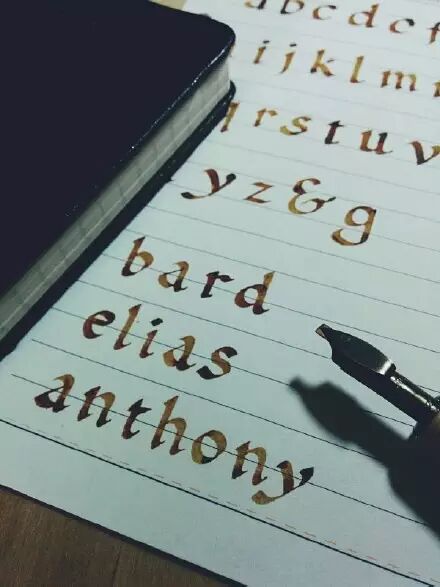 abcdef
ijklm
qrstuv
yz&g
bard
elias
anthony